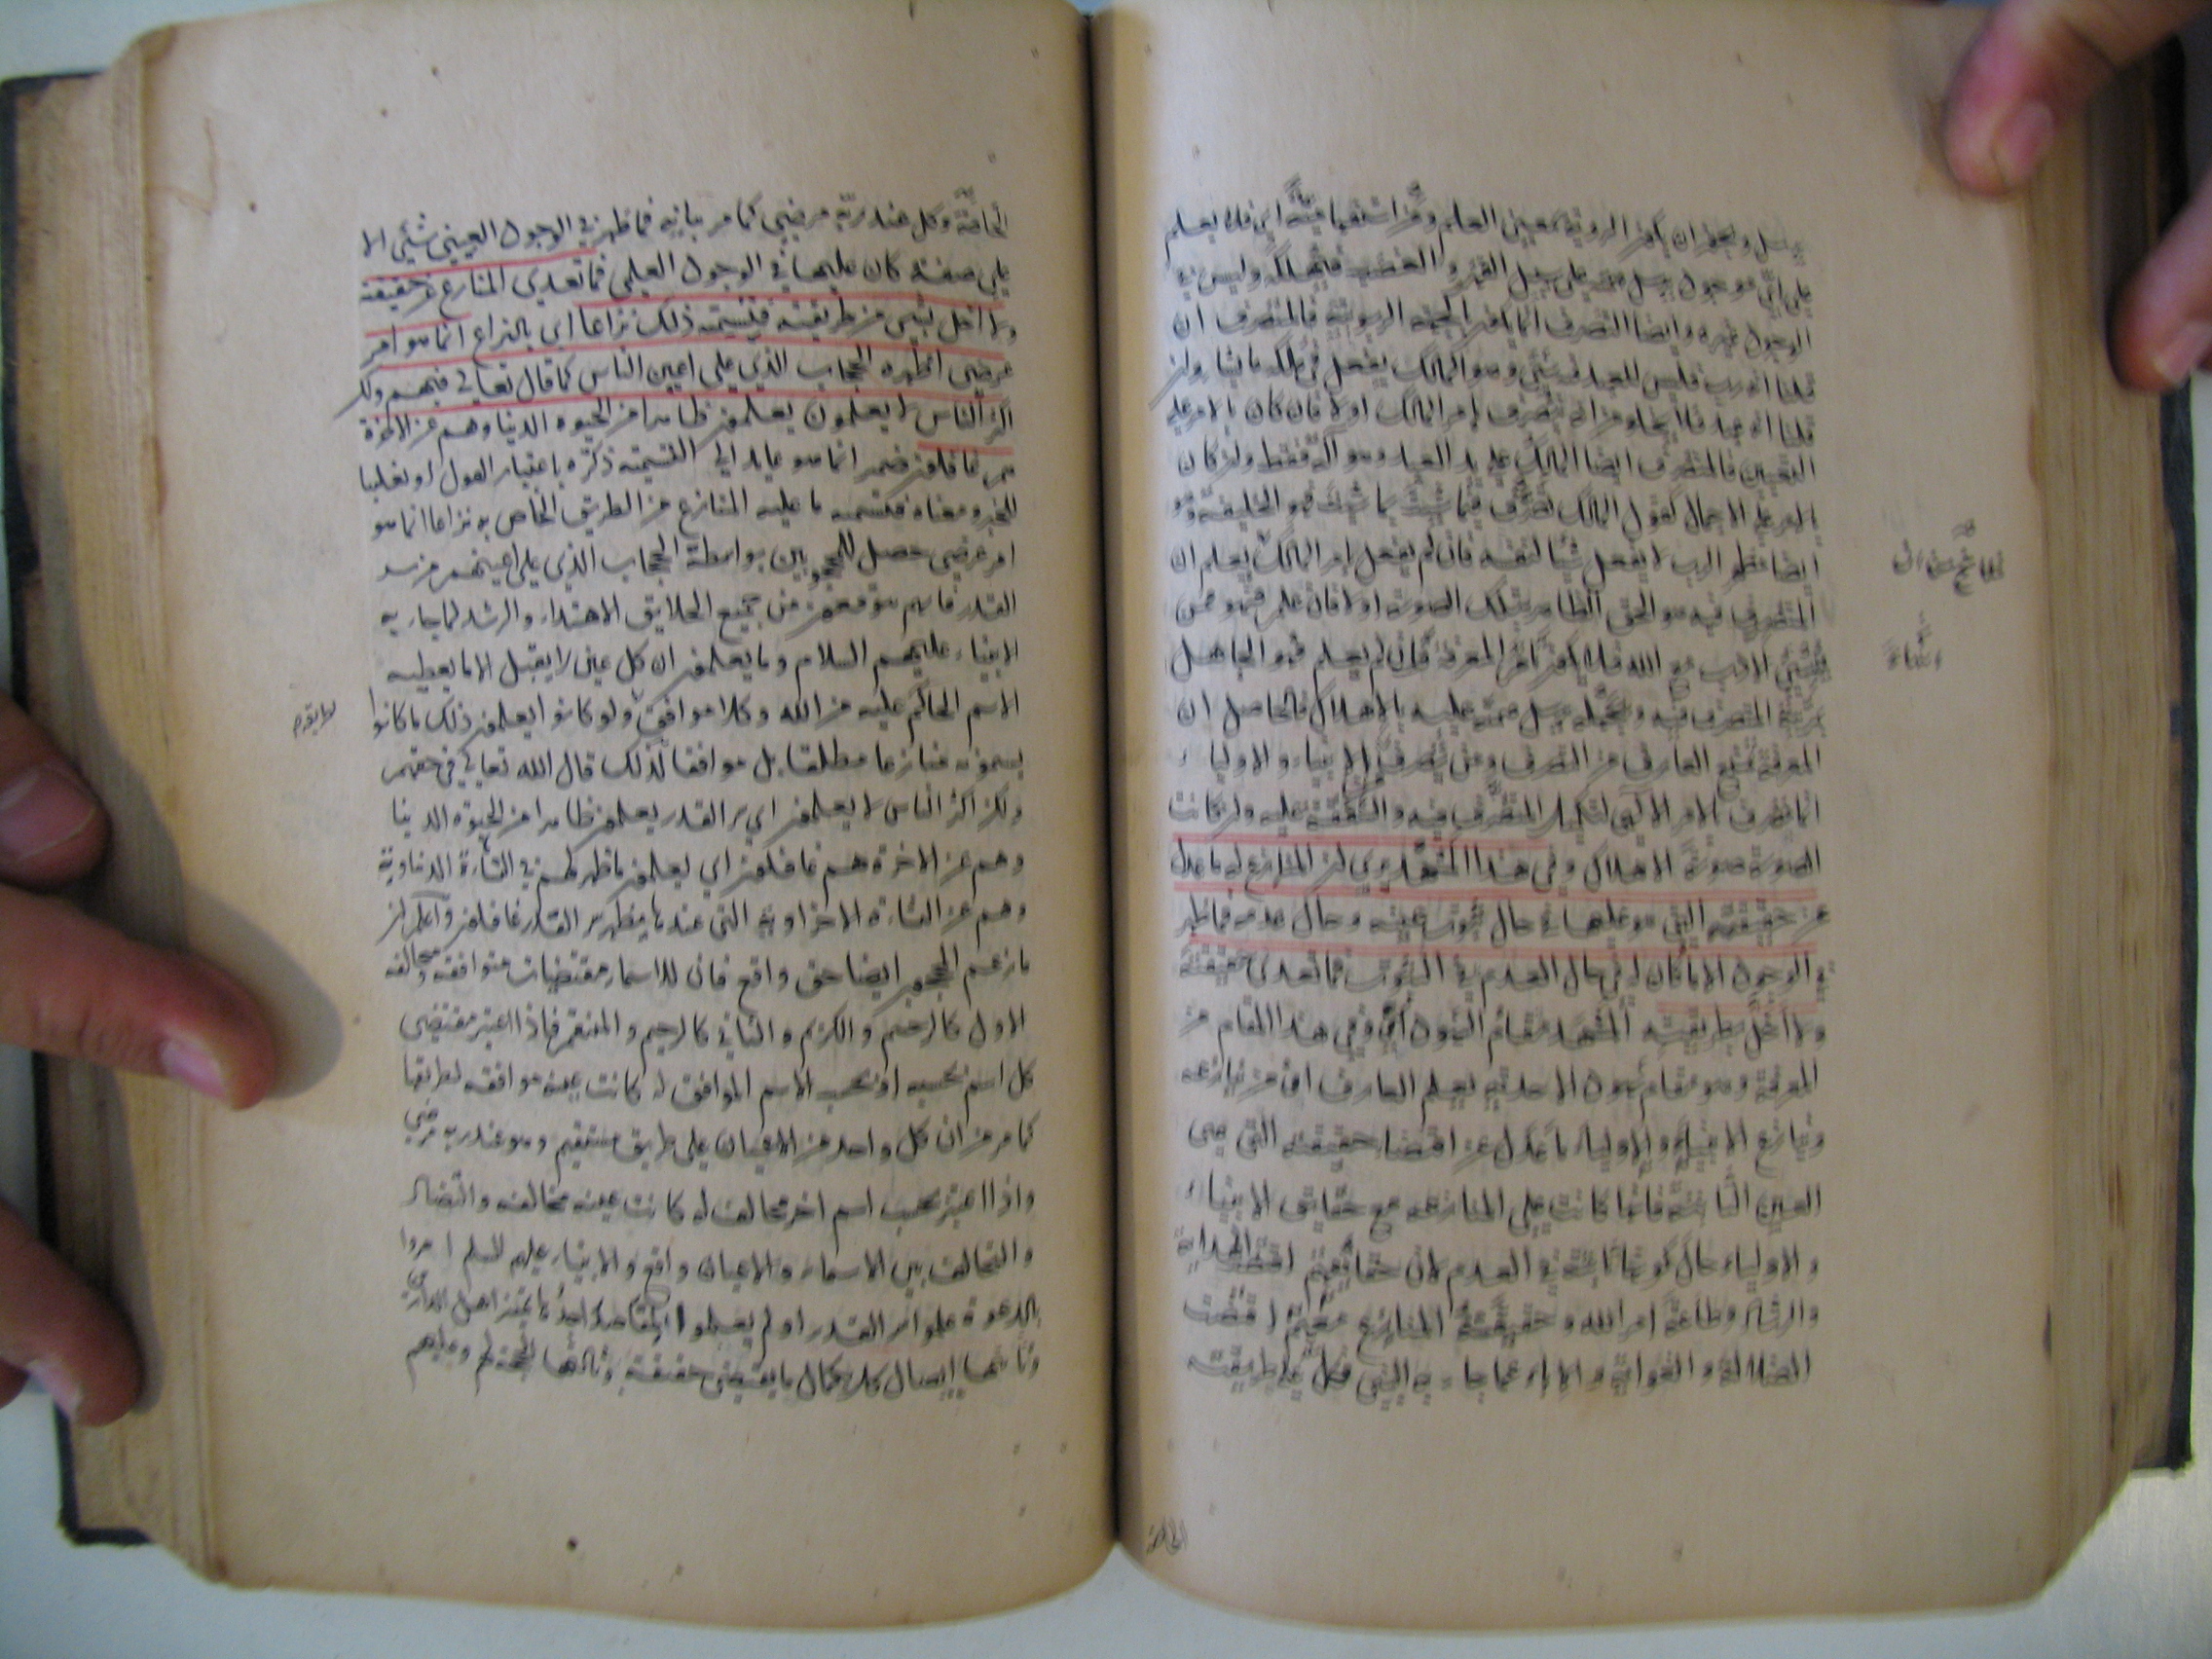 يرسل ويجوز ان يكون الروية بمعنى العلم ومن استفهامية اي فلا يعلم
على اي موجود يرسل همته على سبيل القهر والغضب فيهلكه وليس في
الوجود غيره وايضا التصرف انما يكون بالجهة الربوبية فالمتصرف ان
قلنا انه رب فليس للعبد فيه شئ وهو المالك يفعل في ملكه ما يشاء ولن
قلنا انه عبد فلا يخلو من ان يتصرف بامر المالك اولا فان كان بالامر على
التعيين فالمتصرف ايضا المالك على يد العبد وهو آلة فقط ولن كان
الامر على الاجمال كقول المالك تصرف فيما شئت بما شئت فهو الخليفة وهو
ايضا مظهر الرب لا يفعل شيئا لنفسه فان لم يفعل بامر المالك يعلم ان
المتصرف فيه هو الحق الظاهر بتلك الصورة اولا فان علم فهو ممن
يسئ الادب مع الله فلا يكون تام المعرفة فان لم يعلم فهو الجاهل
المتصرف فيه وبجهله يرسل همته عليه بالاهلاك فالحاصل ان
المعرفة تمنع العارف من التصرف ومن تصرف من الانبياء والاولياء
انما تصرف بالامر الالهي لتكميل المتصرف فيه والشفقة عليه ولن كانت
الصورة صورة الاهلاك وفي هذا المشهد يرى لن المنازع له ما عدل
عن حقيقته التي هو عليها في حال ثبوت عينه وحال عدمه فما ظهر
في الوجود الا ما كان له في حال العدم في الثبوت فما تعدى حقيقته
ولا اخل بطريقته المشهد مقام الشهود اي وفي هذا المقام من
المعرفة وهو مقام شهود الاحدية يعلم العارف ان من ينازعه
وينازع الانبياء والاولياء ما عدل عن اقتضاء حقيقته التي هي
العين الثابتة فانها كانت على المنازعة مع حقايق الانبياء
والاولياء حال كونها ثابتة في العدم لان حقايقهم اقتضت الهداية
والرشاد وطاعة امر الله وحقيقة المنازع معهم اقتضت
الضلالة والغواية والاباء عما جاء به النبي فكل على طريقته
الخاصة
الخاصة وكل عند ربه مرضي كما مر بيانه فما ظهر في الوجود العيني شئ الا
على صفة كان عليها في الوجود العلمي فما تعدى المنازع عن حقيقته
ولا اخل بشئ من طريقته فتسمية ذلك نزاعا اي بالنزاع انما هو امر
عرضي اظهره الحجاب الذي على اعين الناس كما قال تعالى فيهم ولكن
اكثر الناس لا يعلمون يعلمون ظاهرا من الحيوة الدنيا وهم عن الاخرة
هم غافلون ضمير انما هو عايد الى التسمية ذكره باعتبار القول او تغليبا
للخبر ومعناه فتسمية ما عليه المنازع من الطريق الخاص به نزاعا انما هو
امر عرضي حصل للمحجوبين بواسطة الحجاب الذي على اعينهم من سر
القدر فانهم يتوقعون من جميع الخلايق الاهتداء والرشد لما جاء به
الانبياء عليهم السلام وما يعلمون ان كل عين لا يقبل الا ما يعطيه
الاسم الحاكم عليه من الله وكلا موافق ولو كانوا يعلمون ذلك ما كانوا
يسمونه منازعا مطلقا بل موافقا لذلك قال الله تعالى في حقهم
ولكن اكثر الناس لا يعلمون اي سر القدر يعلمون ظاهرا من الحيوة الدنيا
وهم عن الاخرة هم غافلون اي يعلمون ما ظهر لهم في النشأة الدنياوية
وهم عن النشاءة الاخراوية التي عندها يظهر سر القدر غافلون واعلم لن
ما زعم المحجوب ايضا حق واقع فان للاسماء مقتضيات متوافقة ومتخالفة
الاول كالرحيم والكريم والثاني كالرحيم والمنتقم فاذا اعتبر مقتضى
كل اسم بحسبه او بحسب الاسم الموافق له كانت عينه موافقة لطريقها
كما مر من ان كل واحد من الاعيان على طريق مستقيم وهو عند ربه مرضي
واذا اعتبر بحسب اسم اخر مخالف له كانت عينه مخالفة والتضاد
والتخالف بين الاسماء والاعيان واقع والانبياء عليهم السلم امروا
بالدعوة علموا سر القدر او لم يعلموا لمقاصد احدها تميز اهل الدارين
وثانيها ايصال كلا بكمال ما يقتضي حقيقته وثالثها الحجة لهم وعليهم